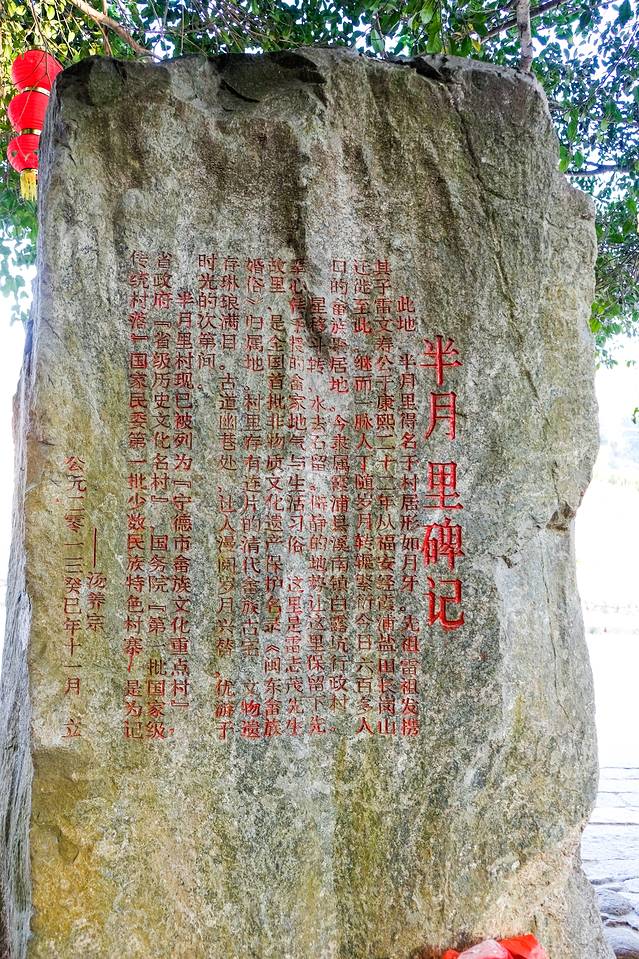 半月里碑记
此地，半月里得名于村居形如月牙。先祖雷祖发携
其子雷文寿公于康熙二十二年从福安经霞浦盐田长岗山
迁涉至此，继而一脉人丁随岁月转辗繁衍今日六百多人
口的畲族聚居地。今隶属霞浦县溪南镇白露坑行政村。
星移斗转，水去石留，僻静的地势让这里保留下先
辈心传手摸的畲家地气与生活习俗。这里是雷志茂先生
故里，是全国首批非物质文化遗产保护名录《闽东畲族
婚俗》归属地。村里存有连片的清代畲族古宅，文物遗
存琳琅满目。古道幽巷处，让人漫阅岁月兴替，优游于
时光的次第间。
半月里村现已被列为『宁德市畲族文化重点村』、
省政府『省级历史文化名村』、国务院『第一批国家级
传统村落』国家民委第一批少数民族特色村寨』是为记
——汤养宗
公元二零一三癸巳年十一月 立